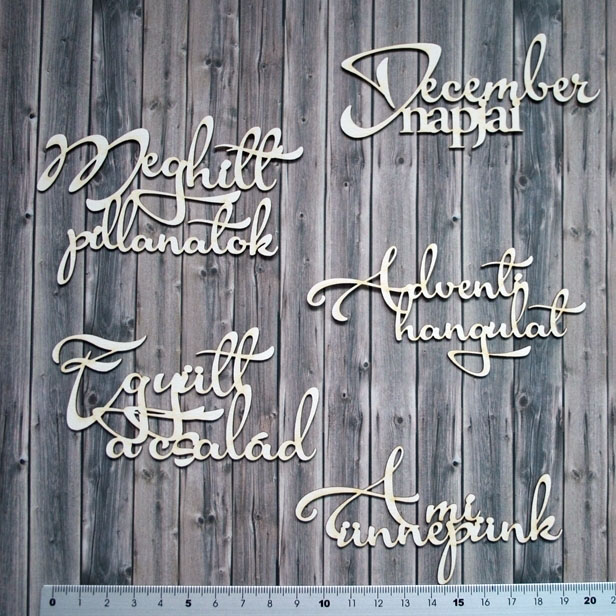 December
napjai
Meghitt
pillanatok
Adventi
hangulat
Együtt
a család
A mi
ünnepünk
0 1 2 3 4 5 6 7 8 9 10 11 12 13 14 15 16 17 18 19 20